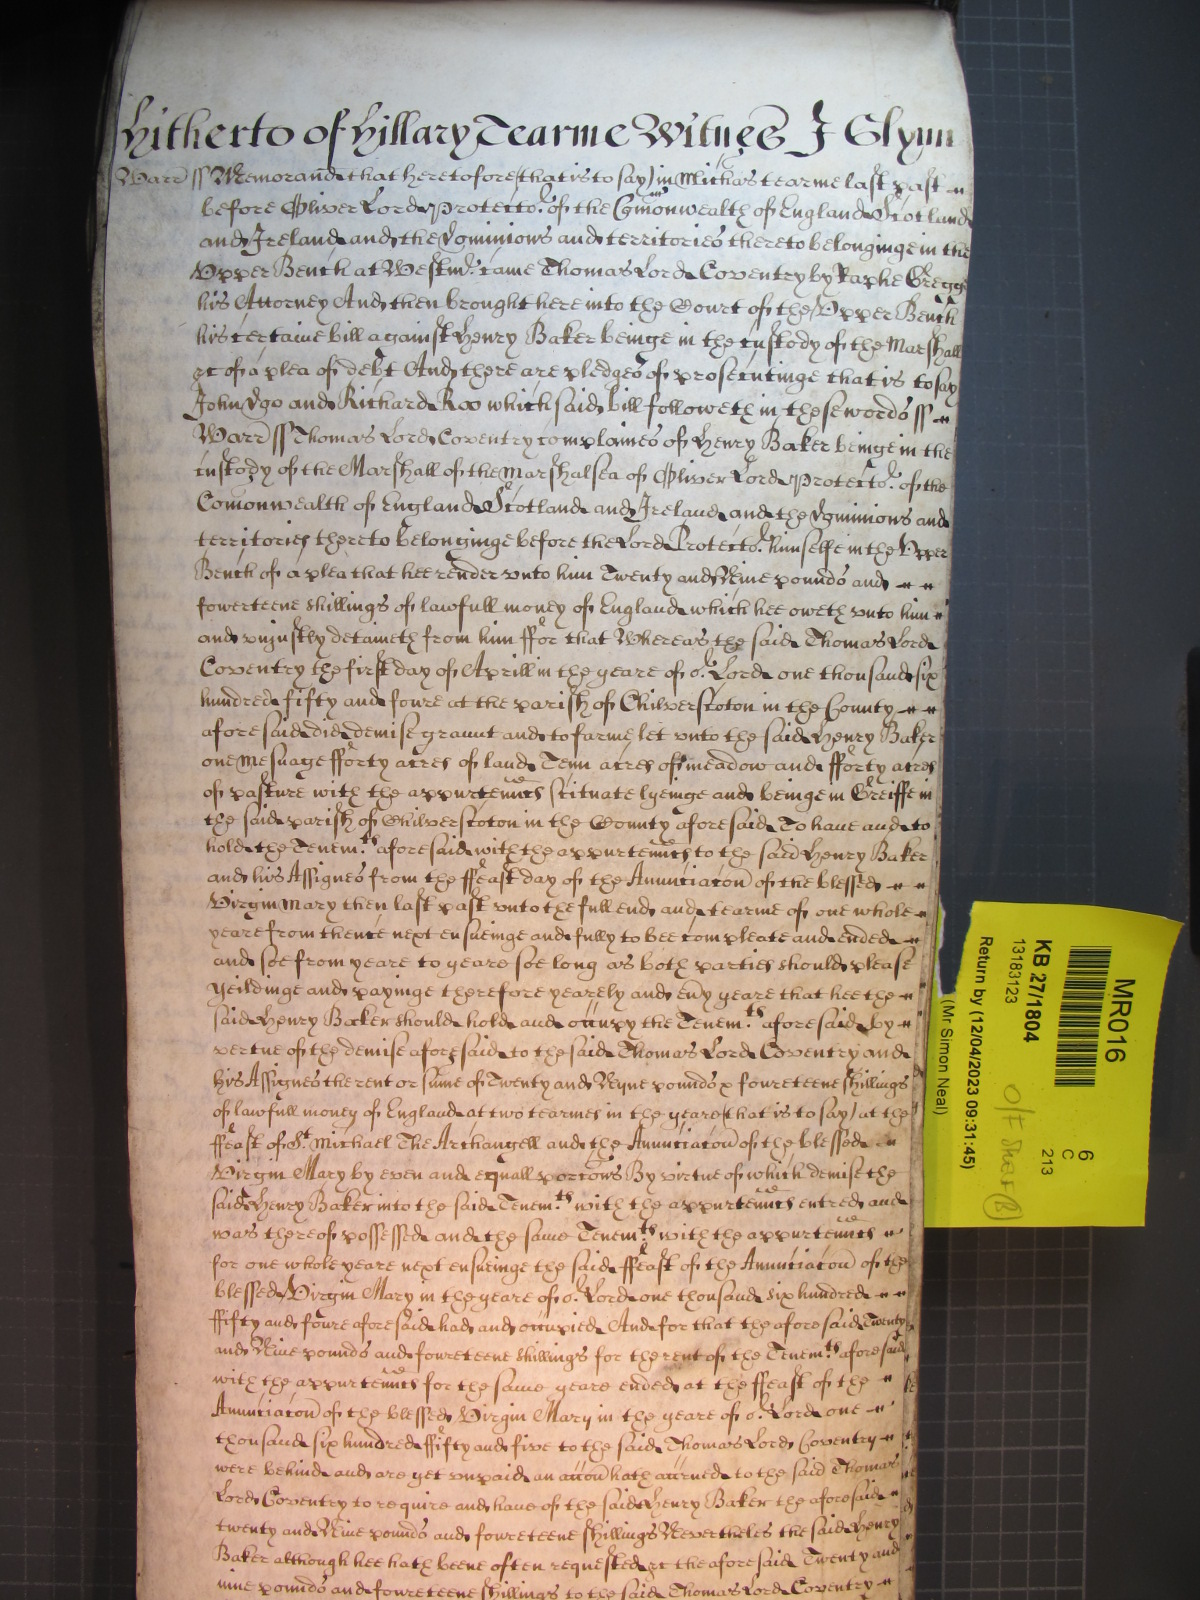 Hitherto of Hillary Tearme Witnes J Glynn
Warr ss Memorand that heretofore (that is to say) in Michas tearme last past
before Oliver Lord Protector of the Comonwealth of England Scotland
and Ireland and the Dominions and territories thereto belonginge in the
Vpper Bench at Westmr came Thomas Lord Coventry by Raphe Gregge
his Attorney And then brought here into the Court of the Vpper Bench
his certaine bill against Henry Baker beinge in the custody of the Marshall
&c of a plea of debt And there are pledges of prosecutinge that is to say
John Doo and Richard Roo which said bill followeth in these words ss
Warr ss Thomas Lord Coventry complaines of Henry Baker beinge in the
custody of the Marshall of the Marshalsea of Oliver Lord Protector of the
Comonwealth of England Scotland and Ireland and the Dominions and
territories thereto belonginge before the Lord Protector himselfe in the Vpper
Bench of a plea that hee render vnto him Twenty and Nine pounds and
fowerteene shillings of lawfull money of England which hee oweth vnto him
and vniustly detaineth from him ffor that Whereas the said Thomas Lord
Coventry the first day of Aprill in the yeare of or Lord one thousand six
hundred fifty and foure at the parish of Chilverscoton in the County
aforesaid did demise graunt and to farme let vnto the said Henry Baker
one Mesuage fforty acres of land Tenn acres of meadow and fforty acres
of pasture with the appurtennces scituate lyeinge and beinge in Greiffe in
the said parish of Chilverscoton in the County aforesaid To haue and to
hold the Tenemts aforesaid with the appurtennces to the said Henry Baker
and his Assignes from the ffeast day of the Anunciacon of the blessed
Virgin Mary then last past vnto the full end and tearme of one whole
yeare from thence next ensueinge and fully to bee compleate and ended
and soe from yeare to yeare soe long as both parties should please
yeildinge and payinge therefore yearely and eury yeare that hee the
said Henry Baker should hold and occupy the Tenemts aforesaid by
vertue of the demise aforesaid to the said Thomas Lord Coventry and
his Assignes the rent or sume of Twenty and Nyne pounds & foureteene shillings
of lawfull money of England at two tearmes in the yeare (that is to say) at the
ffeast of St Michael The Archangell and the Anunciacon of the blessed
Virgin Mary by even and equall porcons By virtue of which demise the
said Henry Baker into the said Tenemts with the appurtennces entred and
was thereof possessed and the same Tenemts with the appurtennces
for one whole yeare next ensueinge the said ffeast of the Anunciacon of the
blessed Virgin Mary in the yeare of or Lord one thousand six hundred
ffifty and foure aforesaid had and occupied And for that the aforesaid Twenty
and Nine pounds and foureteene shillings for the rent of the Tenemts aforesaid
with the appurtennces for the same yeare ended at the ffeast of the
Anunciacon of the blessed Virgin Mary in the yeare of or Lord one
thousand six hundred ffifty and five to the said Thomas Lord Coventry
were behind and are yet vnpaid an accon hath accrued to the said Thomas
Lord Coventry to require and haue of the said Henry Baker the aforesaid
twenty and Nine pounds and fowreteene shillings Neverthelес the said Henry
Baker although hee hath beene often requested &c the aforesaid Twenty and
nine pounds and foureteene shillings to the said Thomas Lord Coventry
MR016
6
C
213
KB 27/1804
13183123
O/F Sheer (B)
Return by (12/04/2023 09:31:45)
(Mr Simon Neal)